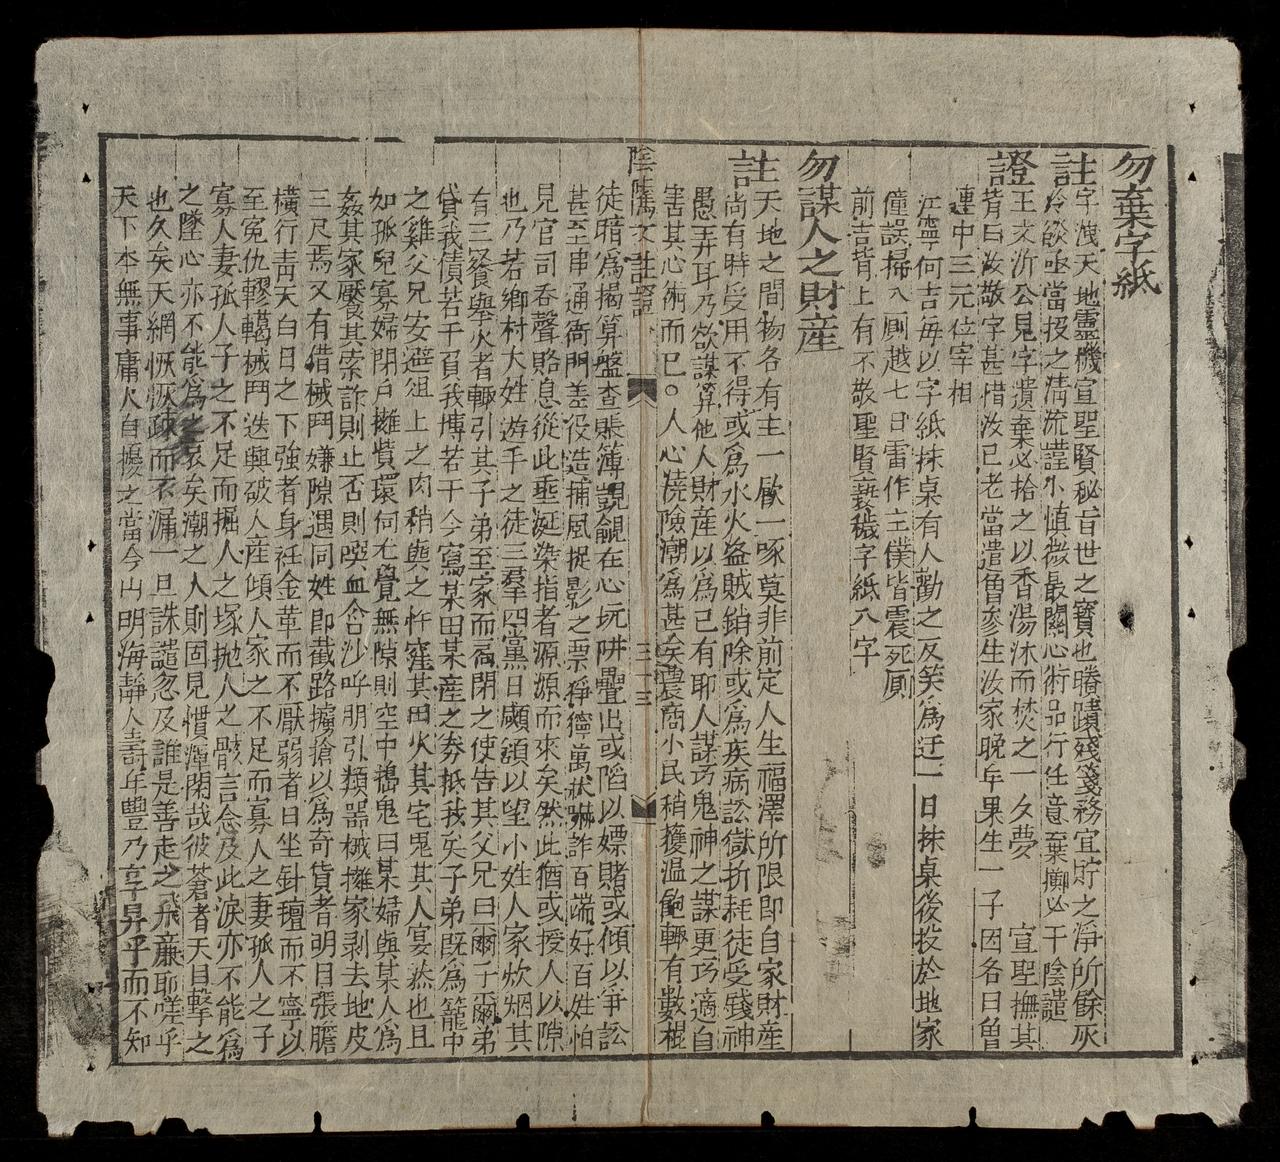 勿棄字紙
註字洩天地靈機宣聖賢秘旨世之寶也賸蹟殘箋務宜貯之淨所餘灰
冷燄亟當投之清流謹小慎微最關心術品行任意棄擲必干陰譴
證王文沂公見字遺棄必拾之以香湯沐而焚之一夕夢 宣聖撫其
背曰汝敬字甚惜汝已老當遣曾參生汝家晚年果生一子因名曰曾
連中三元位宰相
江寧何吉每以字紙抹桌有人勸之反笑為迂一日抹桌後投於地家
僮誤掃入厠越七日雷作主僕皆震死厠
前吉背上有不敬聖賢褻穢字紙八字
勿謀人之財産
註天地之間物各有主一飲一啄莫非前定人生福澤所限即自家財産
尚有時受用不得或為水火盜賊銷除或為疾病訟獄折耗徒受殘神
愚弄耳乃欲謀算他人財産以為己有聊人謀巧鬼神之謀更巧適自
害其心術而已○人心澆險潮為甚矣農商小民稍獲溫飽輒有數棍
陰隲文註證 三十三
徒暗為揭算盤查賬簿覬覦在心坑阱疊出或陷以嫖賭或傾以爭訟
甚至串通衙門善役造捕風捉影之票猙獰萬狀嚇詐百端好百姓怕
見官司吞聲賂息從此垂涎染指者源源而來矣然此猶或授人以隙
也乃若鄉村大姓遊手之徒三羣四黨日顧頷以望小姓人家炊烟其
有三餐舉火者輒引其子弟至家而扃閉之使告其父兄曰爾子爾弟
貸我債若干負我博若干今寫某田某産之券抵我矣子弟既為籠中
之雞父兄安避俎上之肉稍與之忤窪其田火其宅鬼其人宴然也且
如孤兒寡婦閉戶擁貲環伺尤覺無隙則空中搗鬼曰某婦與某人為
姦其家饜其索詐則止否則噀血含沙呼朋引類器械擁家剥去地皮
三尺焉又有借械鬥嫌隙遇同姓即截路擄搶以為奇貨者明目張膽
橫行青天白日之下強者身衽金革而不厭弱者日坐針氊而不寧以
至冤仇轇轕械鬥迭興破人産傾人家之不足而寡人之妻孤人之子
寡人妻孤人子之不足而掘人之塚拋人之骸言念及此淚亦不能為
之墜心亦不能為之哀矣潮之人則固見慣渾閑哉彼蒼者天目擊之
也久矣天網恢恢疎而不漏一旦誅譴忽及誰是善走之飛廉耶嗟乎
天下本無事庸人自擾之當今山明海靜人壽年豐乃享昇平而不知